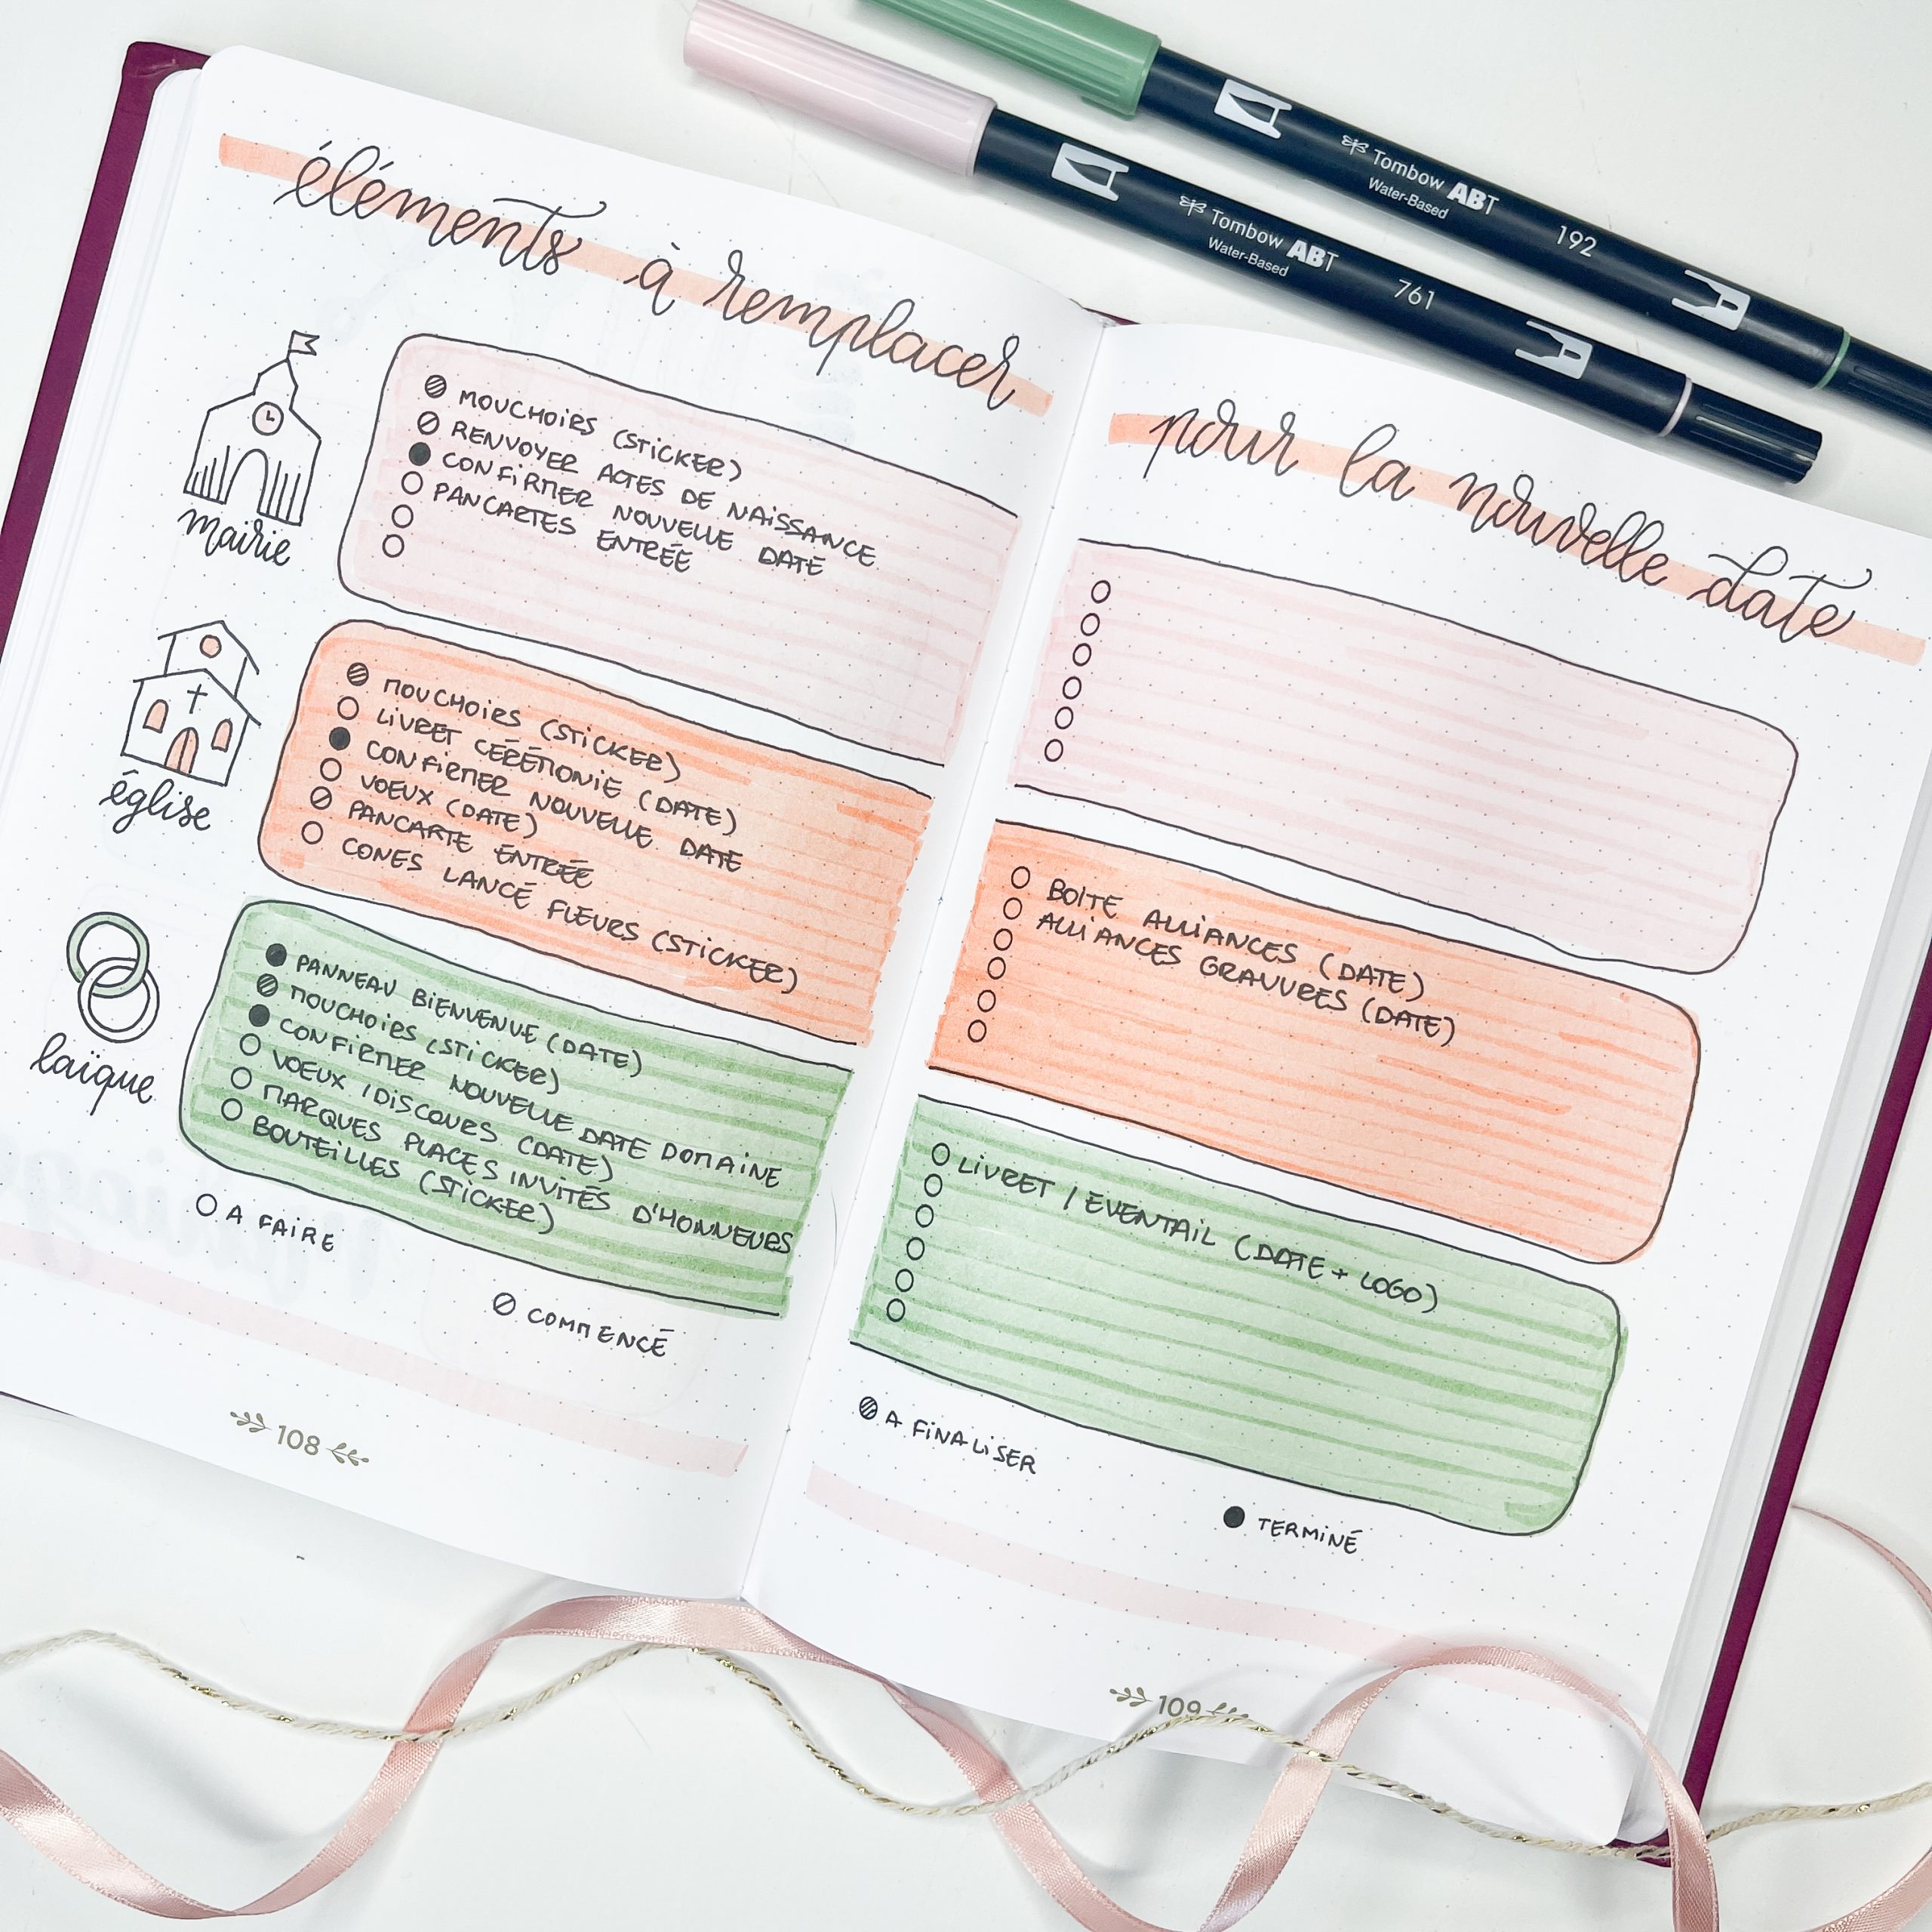 éléments à remplacer
mairie
MOUCHOIRS (STICKER)
RENVOYER ACTES DE NAISSANCE
CONFIRMER NOUVELLE DATE
PANCARTES ENTRÉE
église
MOUCHOIRS (STICKER)
LIVRET CÉRÉMONIE (DATE)
CONFIRMER NOUVELLE DATE
VOEUX (DATE)
PANCARTE ENTRÉE
CONES LANCÉ FLEURS (STICKER)
laïque
PANNEAU BIENVENUE (DATE)
MOUCHOIRS (STICKER)
CONFIRMER NOUVELLE DATE DOMAINE
VOEUX / DISCOURS (DATE)
MARQUES PLACES INVITÉS D'HONNEURS
BOUTEILLES (STICKER)
A FAIRE
COMMENCÉ
108
pour la nouvelle date
BOITE ALLIANCES (DATE)
ALLIANCES GRAVURES (DATE)
LIVRET / EVENTAIL (DATE + LOGO)
A FINALISER
TERMINÉ
109
Tombow ABT
Water-Based
192
Tombow ABT
Water-Based
761